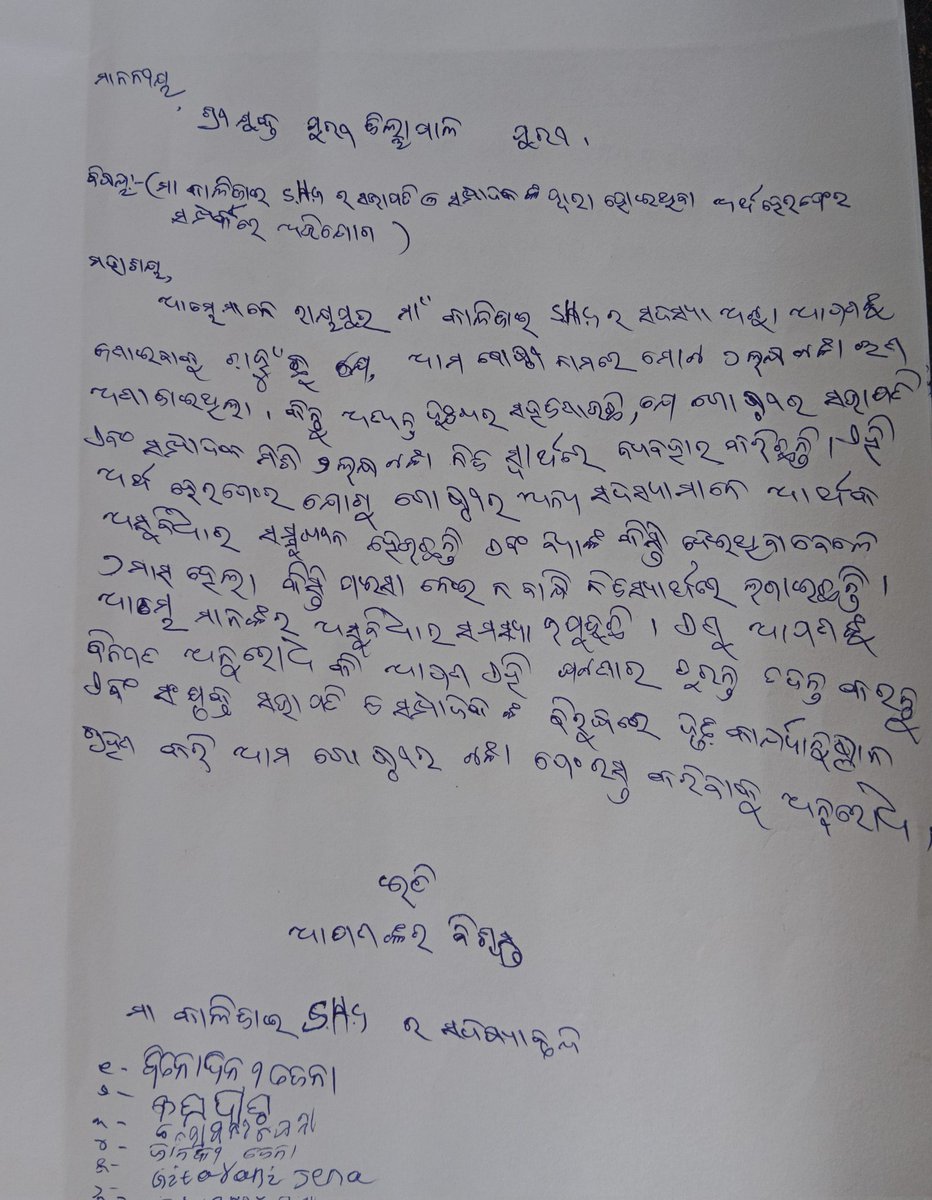 ମାନନୀୟ,
ଶ୍ରୀଯୁକ୍ତ ପୁରୀ ଜିଲ୍ଲାପାଳ ପୁରୀ ।
(ମା କାଳିଜାଇ SHG ର ସଭାପତି ଓ ସମ୍ପାଦକଙ୍କ ଦ୍ୱାରା ହୋଇଥିବା ଅର୍ଥ ହେରଫେର
ସମ୍ପର୍କରେ ଅଭିଯୋଗ)
ମହାଶୟ,
ଆମ୍ଭେମାନେ ରାୟପୁର ମାଁ କାଳିଜାଇ SHG ର ସଦସ୍ୟା ଅଟୁ । ଆପଣଙ୍କୁ
ଜଣାଇବାକୁ ଚାହୁଁଛୁ ଯେ, ଆମ ଗୋଷ୍ଠୀ ନାମରେ ମୋଟ ଲକ୍ଷ ଟଙ୍କା ଋଣ
ଅଣାଯାଇଥିଲା । କିନ୍ତୁ ଅତ୍ୟନ୍ତ ଦୁଃଖର ସହ ଯେ ଗୋଷ୍ଠୀର ସଭାପତି
ଏବଂ ସମ୍ପାଦକ ମିଶି ଲକ୍ଷ ଟଙ୍କା ନିଜ ସ୍ୱାର୍ଥରେ ବ୍ୟବହାର କରିଛନ୍ତି । ଏହି
ଅର୍ଥ ହେରଫେର ଯୋଗୁ ଗୋଷ୍ଠୀର ଅନ୍ୟ ସଦସ୍ୟାମାନେ ଆର୍ଥିକ
ଅସୁବିଧାର ସମ୍ମୁଖୀନ ହେଉଛନ୍ତି ଏବଂ ବ୍ୟାଙ୍କ କିସ୍ତି ଦେଇଥିବା ବେଳେ
ମାସ ହେଲା କିସ୍ତି ପଇସା ନେଇ ନ ଦେଇ ନିଜସ୍ୱାର୍ଥରେ ଲଗାଇଛନ୍ତି ।
ଆମ୍ଭେ ମାନଙ୍କର ଅସୁବିଧାର ସମସ୍ୟା ଉପୁଜୁଛି । ଏଣୁ ଆପଣଙ୍କୁ
ବିନୀତ ଅନୁରୋଧ କି ଆପଣ ଏହି ଘଟଣାର ତୁରନ୍ତ ତଦନ୍ତ କରନ୍ତୁ
ଏବଂ ସଂପୃକ୍ତ ସଭାପତି ଓ ସମ୍ପାଦକଙ୍କ ବିରୁଦ୍ଧରେ ଦୃଢ଼ କାର୍ଯ୍ୟାନୁଷ୍ଠାନ
ଗ୍ରହଣ କରି ଆମ ଗୋଷ୍ଠୀର ଟଙ୍କା ଫେରସ୍ତ କରିବାକୁ ଅନୁରୋଧ ।
ଇତି
ଆପଣଙ୍କର ବିଶ୍ୱସ୍ତ
ମା କାଳିଜାଇ SHG ର ସଦସ୍ୟାବୃନ୍ଦ
୧- ବିନୋଦିନୀ ଜେନା
୨-
୩-
୪- ଜେନା
୫- Gitarani Jena